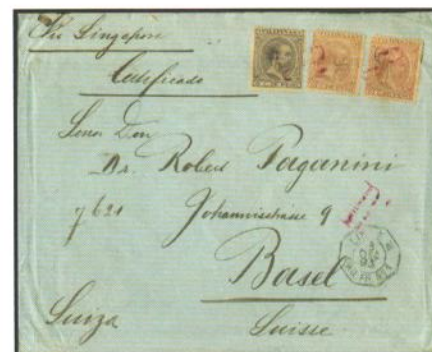 Via Singapore
Certificado
Senor Don
Dr. Robert Paganini
Johannisstrasse 9
Basel
Suiza
Suisse